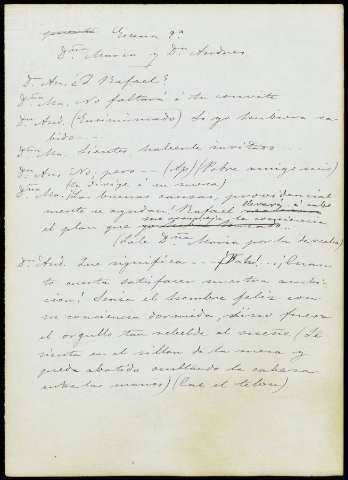 Escena 9ª
Dña María y Dn Andrés
Dn An. ¿D. Rafael?
Dña Ma. No faltará á tu convite
Dn And. (Ensimismado) Si yo hubiera sa-
bido...
Dña Ma. Sientes haberle invitado...
Dn An. No, pero... (Ap) (Pobre amigo mio)
(Se dirige á su mesa)
Dña Ma. (Las buenas causas, providencial-
mente se ayudan! Rafael llevará á cabo
el plan que me aconseja la conciencia
(Sale Dña María por la derecha)
Dn And. Que significa... ¡Cuan-
to cuesta satisfacer nuestra ambi-
cion! Seria el hombre feliz con
su conciencia dormida, si no fuera
el orgullo tan rebelde al sueño. (Se
sienta en el sillon de la mesa y
queda abatido ocultando la cabeza
entre las manos) (Cae el telon)